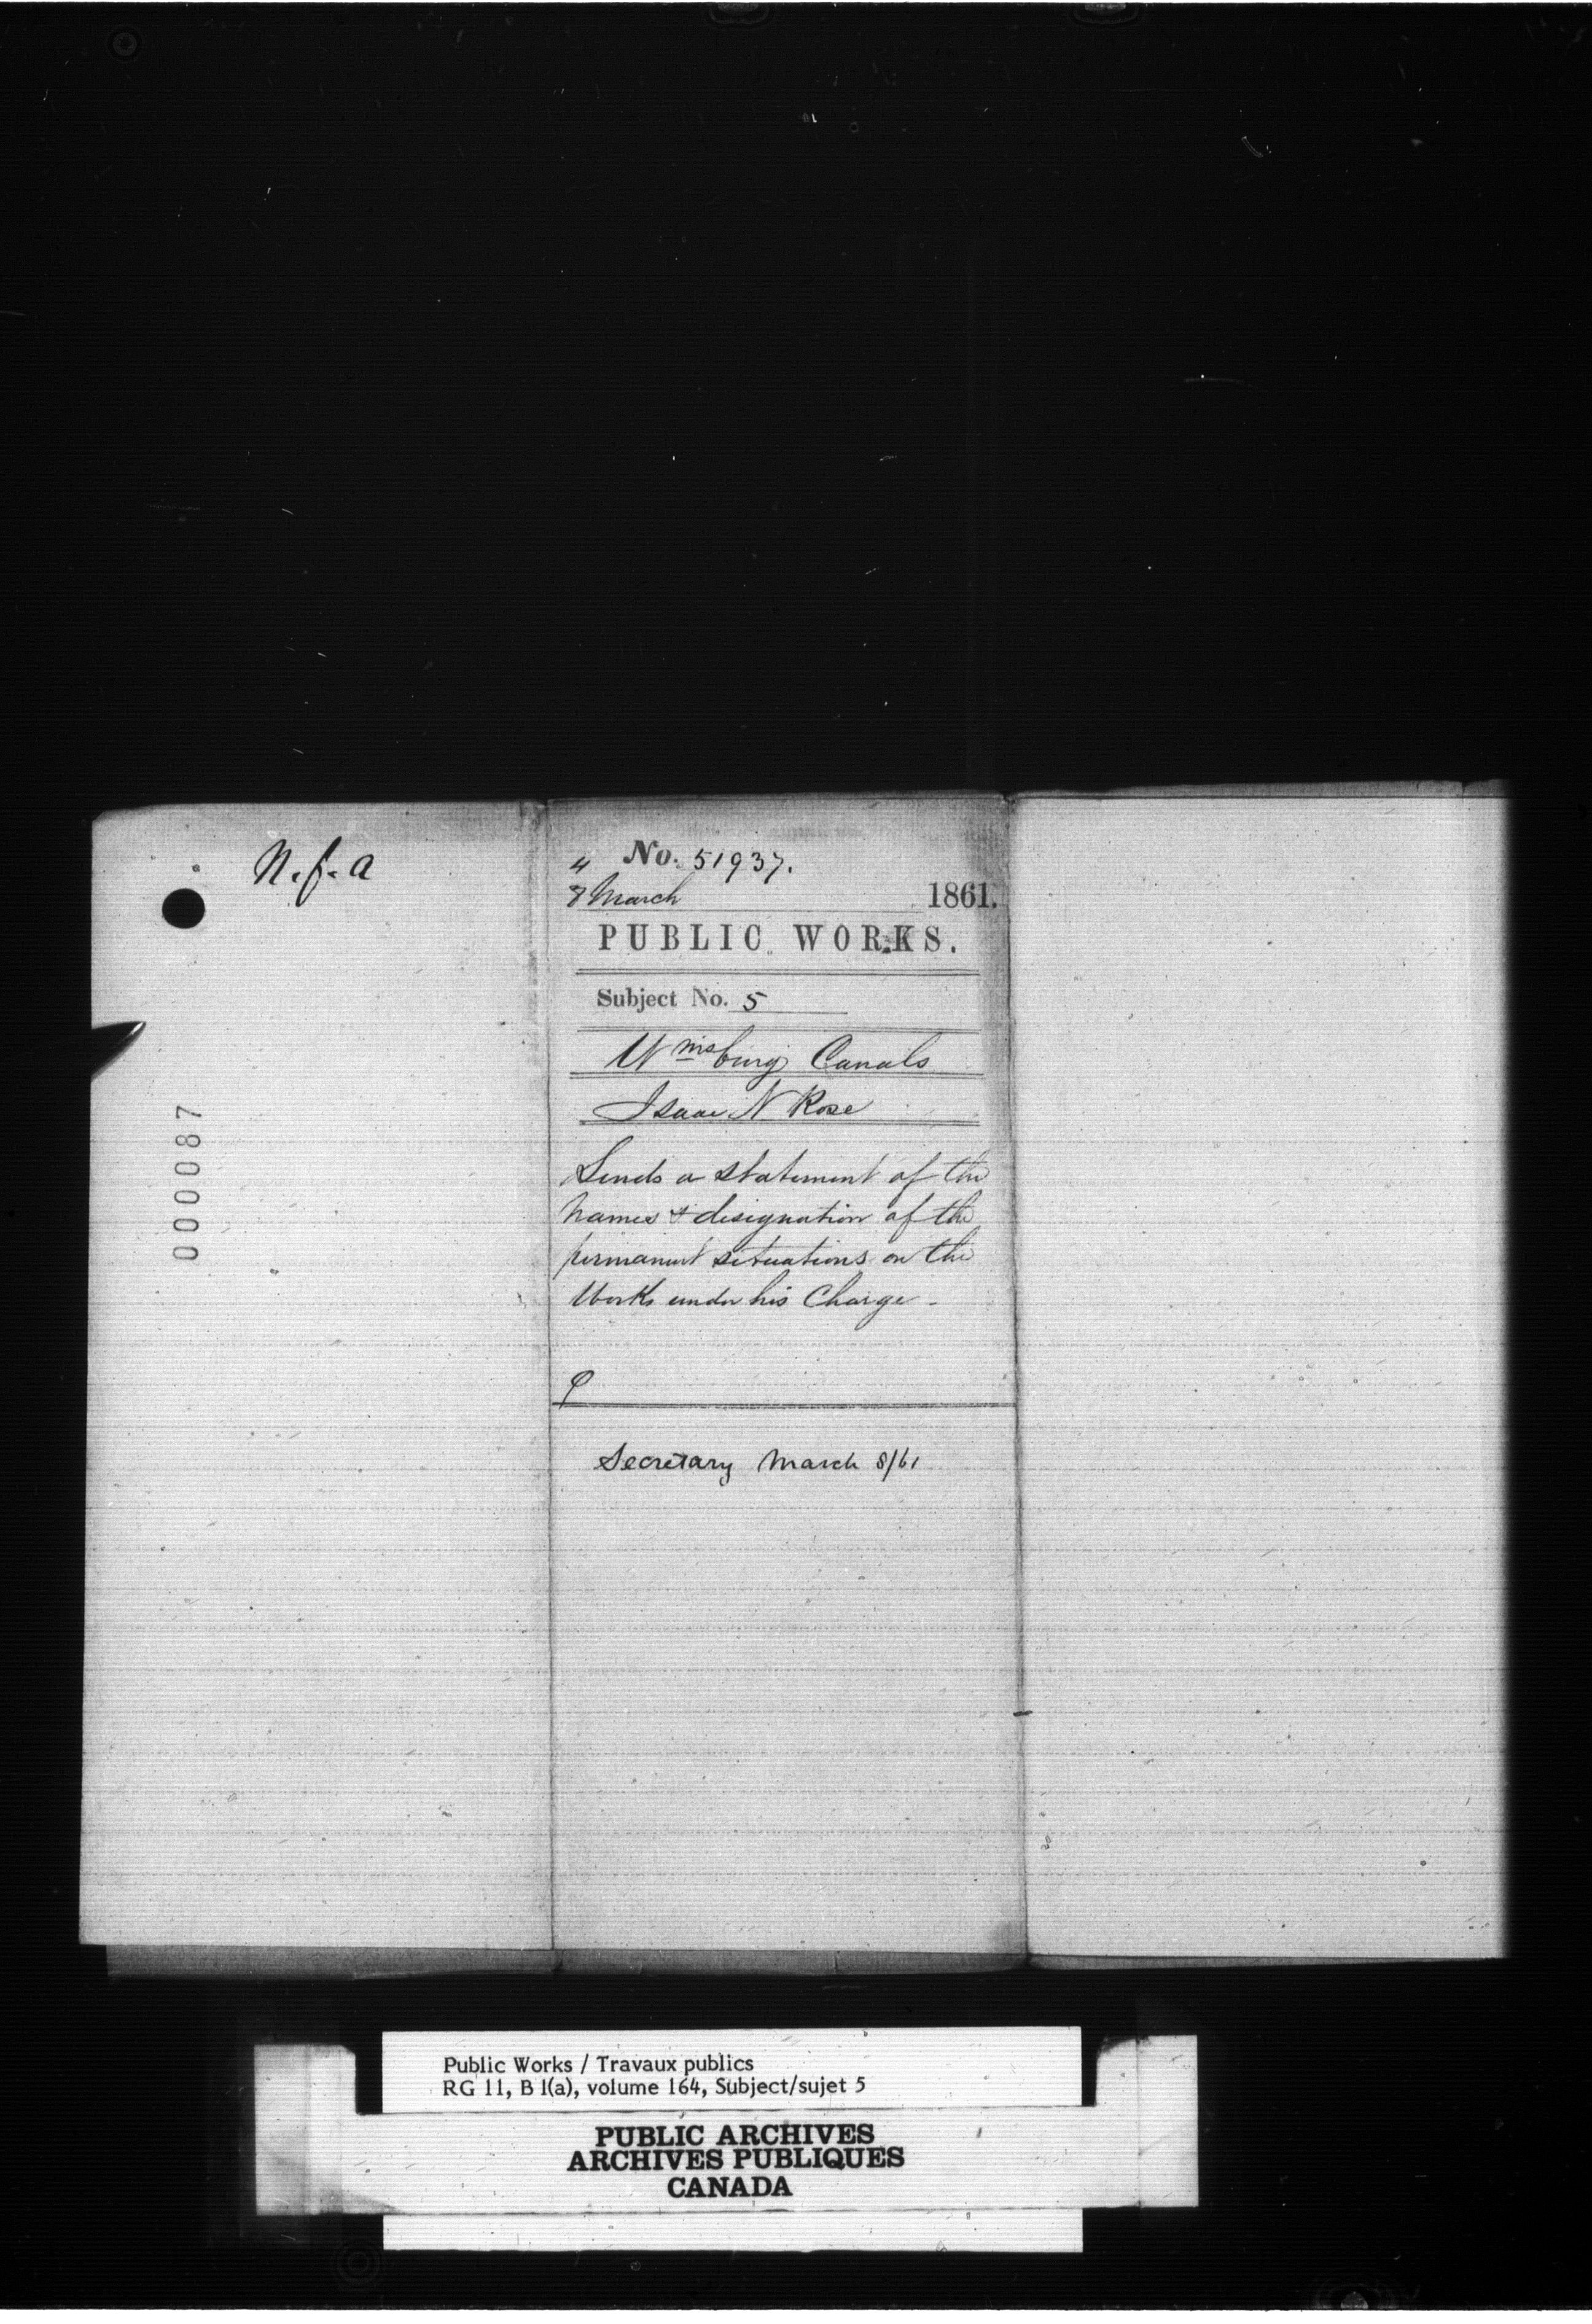 N.f.a
000087
4 No. 51937.
8 March 1861.
PUBLIC WORKS.
Subject No. 5
Wmsburg Canals
Isaac N Rose
Sends a statement of the
names & designation of the
permanent situations on the
Works under his Charge -
Secretary March 8/61
Public Works / Travaux publics
RG 11, B 1(a), volume 164, Subject/sujet 5
PUBLIC ARCHIVES
ARCHIVES PUBLIQUES
CANADA